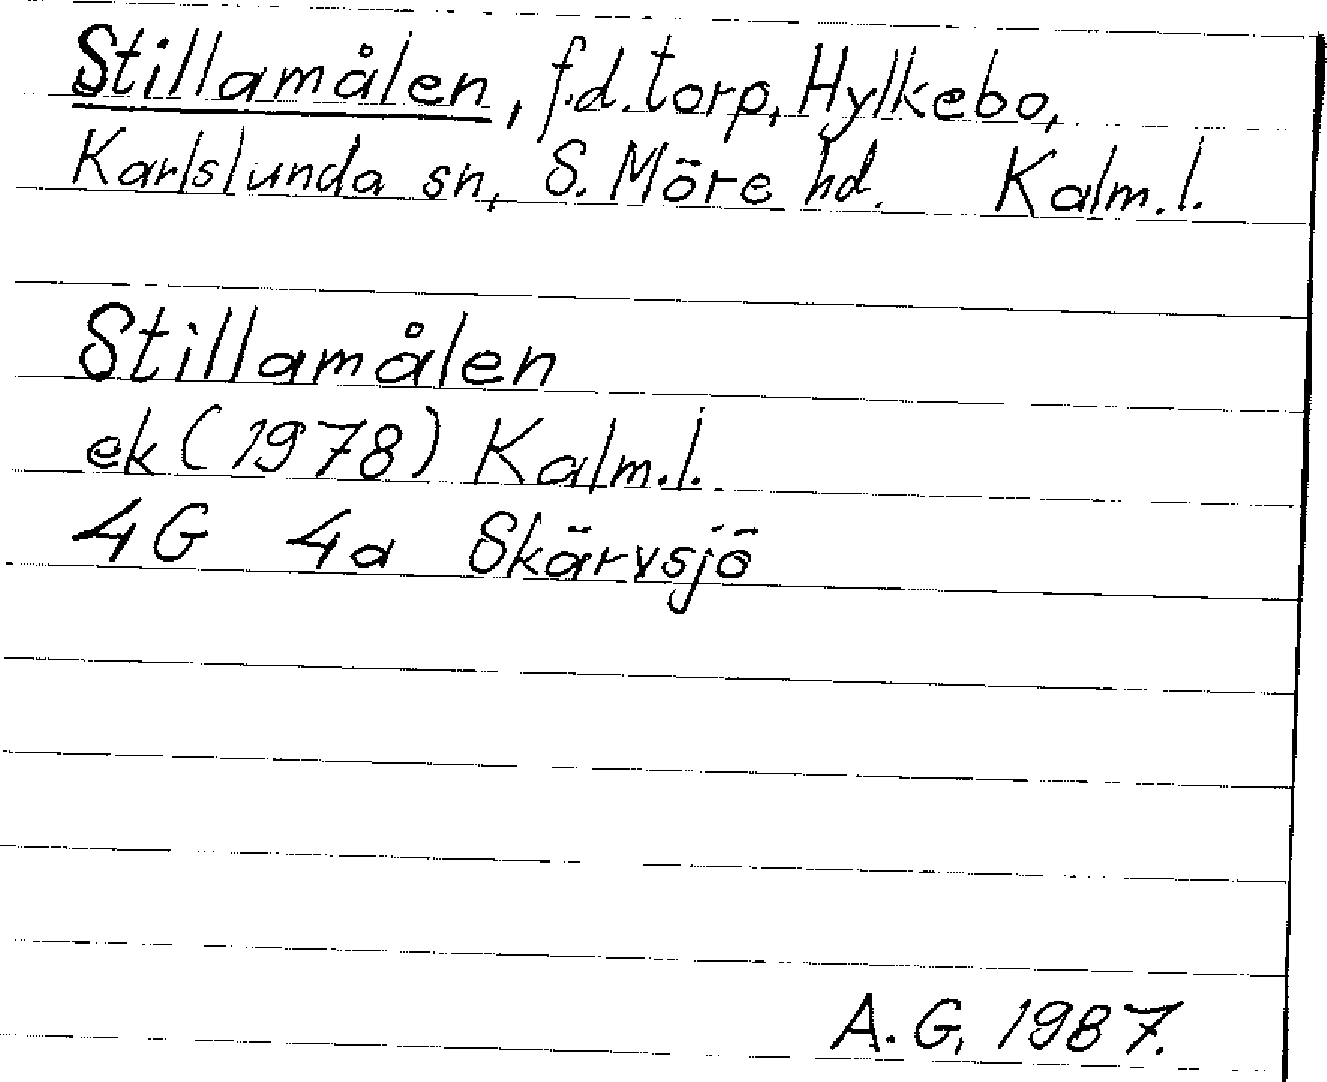 Stillamålen, f.d. torp, Hylkebo,
Karlslunda sn, S. Möre hd. Kalm.l.
Stillamålen
ek (1978) Kalm.l.
4G 4a Skärvsjö
A.G. 1987.